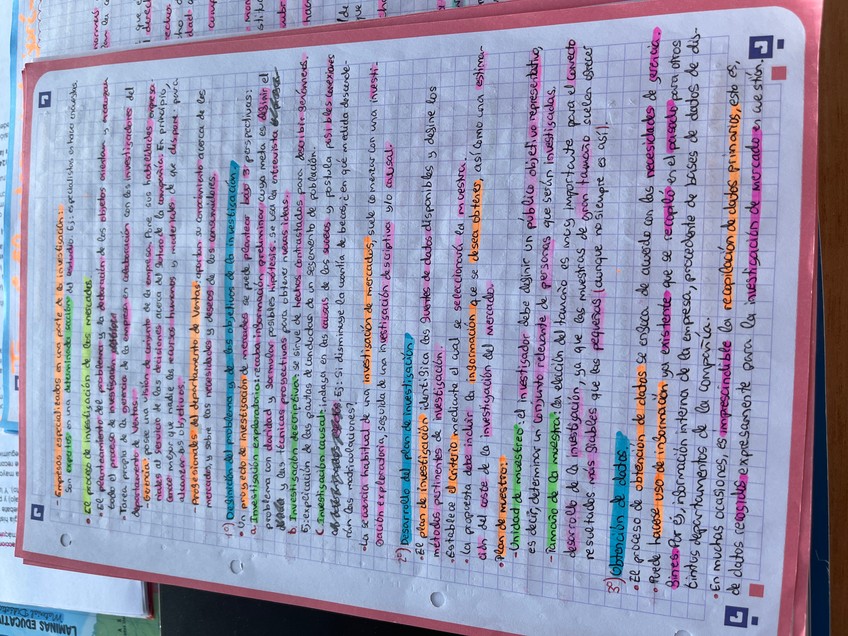 - Empresas especializadas en una parte de la investigación:
Son expertos en una determinada acción del estudio. Ej: especialistas en hacer encuestas.
• El proceso de investigación de los mercados
• El planteamiento del problema y la declaración de los objetivos orientan y encarrilan
todo el proceso de investigación
• Tarea propia de la gerencia de la empresa en colaboración con los investigadores del
departamento de ventas.
- Gerencia: posee una visión de conjunto de la empresa. Pone sus habilidades empresa-
riales al servicio de las decisiones acerca del futuro de la compañía. En principio,
conoce mejor que nadie los recursos humanos y materiales de que dispone para
alcanzar sus objetivos.
- Profesionales del departamento de ventas: aportan su conocimiento acerca de los
mercados, y sobre las necesidades y deseos de los consumidores.
1º) Definición del problema y de los objetivos de la investigación
• Un proyecto de investigación de mercados se puede plantear bajo 3 perspectivas:
a. Investigación exploratoria: recaba información preliminar cuya meta es definir el
problema con claridad y formular posibles hipótesis. Se usa la entrevista
y las técnicas proyectivas para obtener nuevas ideas.
b. Investigación descriptiva: se sirve de hechos contrastados para describir fenómenos.
Ej: explicación de las pautas de conducta de un segmento de población.
c. Investigación causal: indaga en las causas de los sucesos y postula posibles conexiones
Ej: si disminuye la cuantía de becas, ¿en qué medida descende-
rán las matriculaciones?
• La secuencia habitual de una investigación de mercados, suele comenzar con una investi-
gación exploratoria, seguida de una investigación descriptiva y/o causal.
2º) Desarrollo del plan de investigación
• El plan de investigación identifica las fuentes de datos disponibles y define los
métodos pertinentes de investigación.
• Establece el criterio mediante el cual se seleccionará la muestra.
• La propuesta debe incluir la información que se desea obtener, así como una estima-
ción del coste de la investigación del mercado.
• Plan de muestreo:
- Unidad de muestreo: el investigador debe definir un público objetivo representativo,
es decir, determinar un conjunto relevante de personas que serán investigadas.
- Tamaño de la muestra: la elección del tamaño es muy importante para el correcto
desarrollo de la investigación, ya que las muestras de gran tamaño suelen ofrecer
resultados más fiables que las pequeñas (aunque no siempre es así).
3º) Obtención de datos
• El proceso de obtención de datos se enfoca de acuerdo con las necesidades de gerencia.
• Puede hacerse uso de información ya existente que se recopiló en el pasado para otros
fines. Por Ej, información interna de la empresa, procedente de bases de datos de dis-
tintos departamentos de la compañía.
• En muchas ocasiones, es imprescindible la recopilación de datos primarios, esto es,
de datos recogidos expresamente para la investigación de mercado en cuestión.
LÁMINAS EDUCATIV